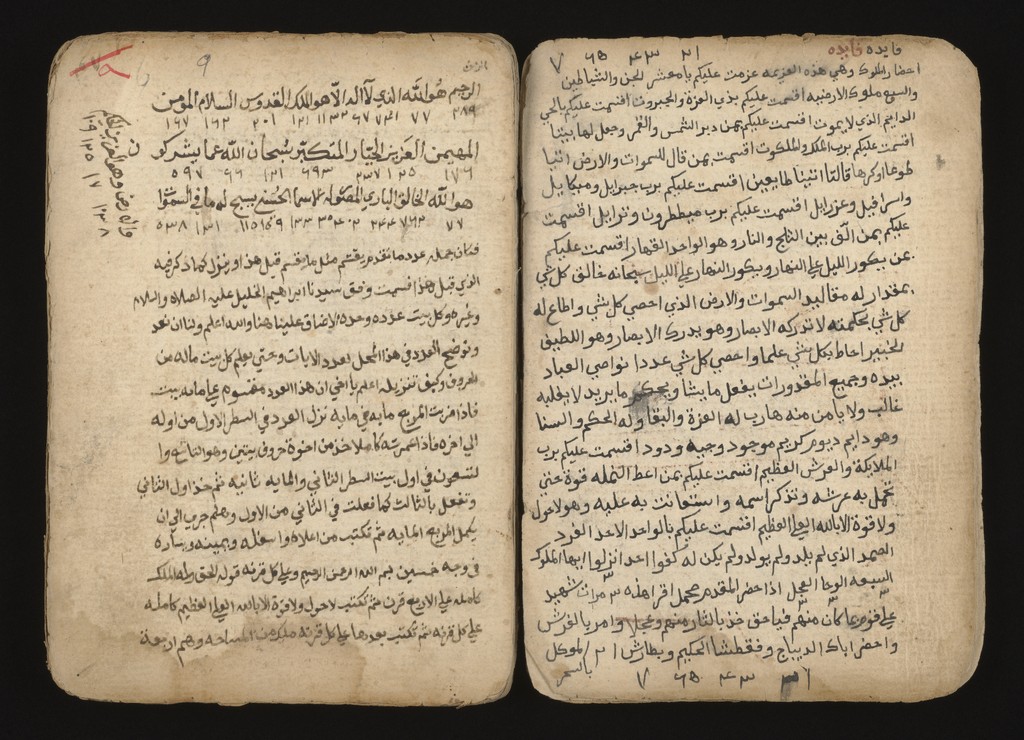 فايده فايده
٧ ٤٣ ٢١
احضار الملوك وهي هذه العزيمه عزمت عليكم يا معشر الجن والشياطين
والسبع ملوك الارضيه اقسمت عليكم بذي العزة والجبروت اقسمت عليكم بالحي
الدايم الذي لا يموت اقسمت عليكم بمن دبر الشمس والقمر وجعل لها بيتا
اقسمت عليكم برب الملك والملكوت اقسمت بمن قال للسموات والارض اتيا
طوعا او كرها قالتا اتينا طايعين اقسمت عليكم برب جبرايل وميكايل
واسرافيل وعزرايل اقسمت عليكم برب ميططرون اقسمت
عليكم بمن الف بين الثلج والنار وهو الواحد القهار اقسمت عليكم
بمن يكور الليل على النهار ويكور النهار على الليل سبحانه خالق كل شي
بمقدار له مقاليد السموات والارض الذي احصى كل شي واطاع له
كل شي بحكمته لا تدركه الابصار وهو يدرك الابصار وهو اللطيف
الخبير احاط بكل شي علما واحصى كل شي عددا نواصي العباد
بيده وجميع المقدورات يفعل ما يشا ويحكم ما يريد لا يغلبه
غالب ولا يامن منه هارب له العزة والبقا وله الحكم والسنا
وهو دايم ديوم كريم موجود وجيه ودود اقسمت عليكم برب
الملايكة والعرش العظيم اقسمت عليكم بمن اعطا النمله قوة حتى
تحمل به عرشه وتذكر اسمه واستعانت به عليه وهو لا حول
ولا قوة الا بالله العلي العظيم اقسمت عليكم بالواحد الاحد الفرد
الصمد الذي لم يلد ولم يولد ولم يكن له كفوا احد انزلوا ايها الملوك
السبعه الوحا العجل اذا حضر المقدم اقرا هذه ٣ مرات شهيد
خذ بالثار منهم وعجلا وامر بالفرش
واحضر اباك الديباج الموكل
باسم
٧ ٤٣ ٢١
٩
الرحيم هو الله الذي لا اله الا هو الملك القدوس السلام المومن
٢٨٩ ٧٧ ٢٠١ ١٦٢ ١٦٧
المهيمن العزيز الجبار المتكبر سبحان الله عما يشركون
١٧٦ ١٢٥ ٢٣٧ ٦٩٣ ١٢١ ٦٦ ٥٩٧
هو الله الخالق الباري المصور له الاسما الحسنى يسبح له ما في السموات
٧٧ ٧٦٢ ١٣١ ٥٣٨
والارض وهو العزيز الحكيم
١٢٥ ١٧
فكان جمله عدد ما تقدم يقسم مثل ما قسم قبل هذا وينزل كما ذكر فيه
الذي قبل هذا قسمت وفق سيدنا ابراهيم الخليل عليه الصلاه والسلام
وغيره وكل بيت عدده وحده لا ضاق علينا هنا والله اعلم ولنا ان نعد
ونوضح العدد في هذا المحل بعدد الايات وحتى يعلم كل بيت ماله من
الحروف وكيف تنزيله اعلم يا اخي ان هذا العدد مقسوم على مايه بيت
فاذا ضربت المربع مايه في مايه نزل العدد في السطر الاول من اوله
الى اخره فاذا عمرته كاملا خذ من اخره حروف بيتين وهو التاسع وا
لتسعون في اول بيت السطر الثاني والمايه ثانيه ثم خذ اول الثاني
وتفعل بالثالث كما فعلت في الثاني من الاول وهلم جرا الى ان
يكمل المربع المايه ثم تكتب من اعلاه واسفله ويمينه ويساره
في وجه خمسين بسم الله الرحمن الرحيم وعلى كل قرنه قوله الحق وله الملك
كامله على الاربع قرن ثم تكتب لا حول ولا قوة الا بالله العلي العظيم كامله
على كل قرنه ثم تكتب بعدها على كل قرنه ملك من وهم اربعة